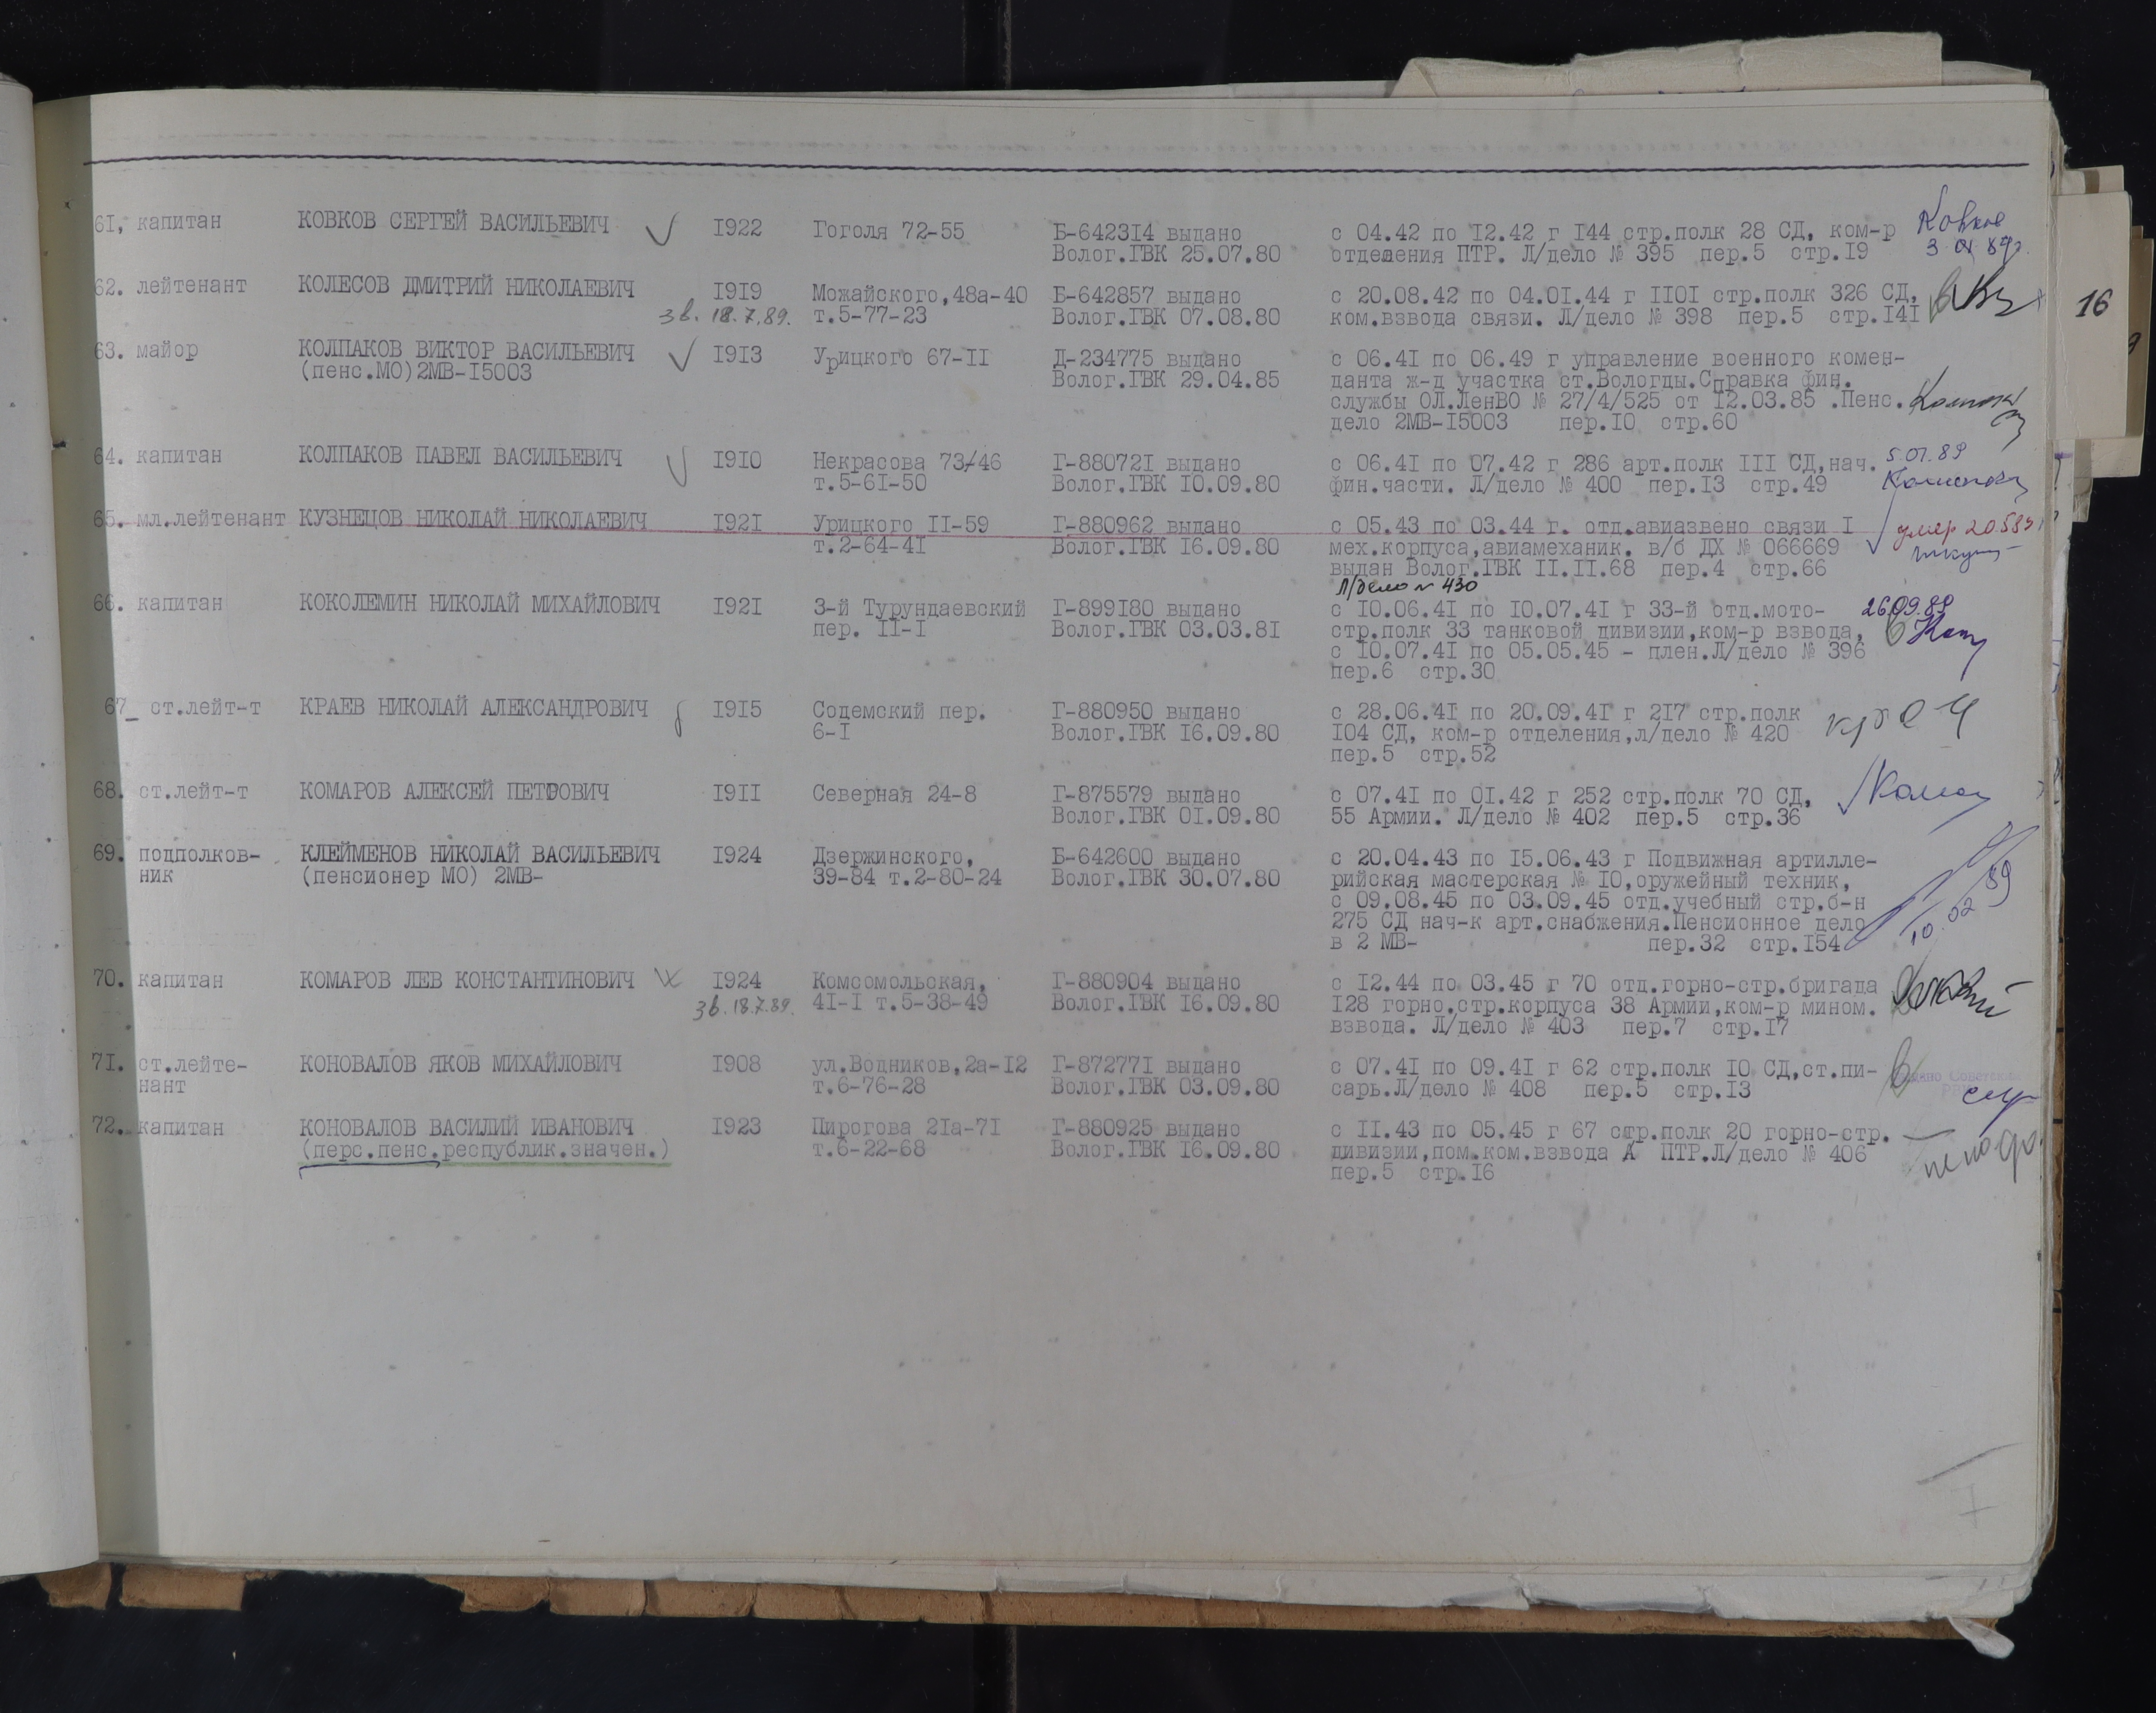 61, капитан КОВКОВ СЕРГЕЙ ВАСИЛЬЕВИЧ 1922 Гоголя 72-55 Б-642314 выдано с 04.42 по 12.42 г 144 стр.полк 28 СД, ком-р Ковков
Волог.ГВК 25.07.80 отделения ПТР. Л/дело № 395 пер.5 стр.19
62. лейтенант КОЛЕСОВ ДМИТРИЙ НИКОЛАЕВИЧ 1919 Можайского,48а-40 Б-642857 выдано с 20.08.42 по 04.01.44 г 1101 стр.полк 326 СД,
зв. 18.7.89. т.5-77-23 Волог.ГВК 07.08.80 ком.взвода связи. Л/дело № 398 пер.5 стр.141
16
63. майор КОЛПАКОВ ВИКТОР ВАСИЛЬЕВИЧ 1913 Урицкого 67-11 Д-234775 выдано с 06.41 по 06.49 г управление военного комен-
(пенс.МО)2МВ-15003 Волог.ГВК 29.04.85 данта ж-д участка ст.Вологды.Справка фин.
службы ОЛ.ЛенВО № 27/4/525 от 12.03.85 .Пенс.
дело 2МВ-15003 пер.10 стр.60
64. капитан КОЛПАКОВ ПАВЕЛ ВАСИЛЬЕВИЧ 1910 Некрасова 73/46 Г-880721 выдано с 06.41 по 07.42 г 286 арт.полк 111 СД,нач. 5.01.89
т.5-61-50 Волог.ГВК 10.09.80 фин.части. Л/дело № 400 пер.13 стр.49
65. мл.лейтенант КУЗНЕЦОВ НИКОЛАЙ НИКОЛАЕВИЧ 1921 Урицкого 11-59 Г-880962 выдано с 05.43 по 03.44 г. отд.авиазвено связи 1 умер
т.2-64-41 Волог.ГВК 16.09.80 мех.корпуса,авиамеханик. в/б ДХ № 066669
выдан Волог.ГВК 11.11.68 пер.4 стр.66
Л/дело № 430
66. капитан КОКОЛЕМИН НИКОЛАЙ МИХАЙЛОВИЧ 1921 3-й Турундаевский Г-899180 выдано с 10.06.41 по 10.07.41 г 33-й отд.мото- 26.09.89
пер. 11-1 Волог.ГВК 03.03.81 стр.полк 33 танковой дивизии,ком-р взвода,
с 10.07.41 по 05.05.45 - плен.Л/дело № 396
пер.6 стр.30
67_ ст.лейт-т КРАЕВ НИКОЛАЙ АЛЕКСАНДРОВИЧ 1915 Содемский пер. Г-880950 выдано с 28.06.41 по 20.09.41 г 217 стр.полк
6-1 Волог.ГВК 16.09.80 104 СД, ком-р отделения,л/дело № 420
пер.5 стр.52
68. ст.лейт-т КОМАРОВ АЛЕКСЕЙ ПЕТРОВИЧ 1911 Северная 24-8 Г-875579 выдано с 07.41 по 01.42 г 252 стр.полк 70 СД,
Волог.ГВК 01.09.80 55 Армии. Л/дело № 402 пер.5 стр.36
69. подполков- КЛЕЙМЕНОВ НИКОЛАЙ ВАСИЛЬЕВИЧ 1924 Дзержинского, Б-642600 выдано с 20.04.43 по 15.06.43 г Подвижная артилле-
ник (пенсионер МО) 2МВ- 39-84 т.2-80-24 Волог.ГВК 30.07.80 рийская мастерская № 10,оружейный техник,
с 09.08.45 по 03.09.45 отд.учебный стр.б-н
275 СД нач-к арт.снабжения.Пенсионное дело
в 2 МВ- пер.32 стр.154 10.02 89
70. капитан КОМАРОВ ЛЕВ КОНСТАНТИНОВИЧ 1924 Комсомольская, Г-880904 выдано с 12.44 по 03.45 г 70 отд.горно-стр.бригада
зв. 18.7.89. 41-1 т.5-38-49 Волог.ГВК 16.09.80 128 горно.стр.корпуса 38 Армии,ком-р мином.
взвода. Л/дело № 403 пер.7 стр.17
71. ст.лейте- КОНОВАЛОВ ЯКОВ МИХАЙЛОВИЧ 1908 ул.Водников,2а-12 Г-872771 выдано с 07.41 по 09.41 г 62 стр.полк 10 СД,ст.пи-
нант т.6-76-28 Волог.ГВК 03.09.80 сарь.Л/дело № 408 пер.5 стр.13
72. капитан КОНОВАЛОВ ВАСИЛИЙ ИВАНОВИЧ 1923 Пирогова 21а-71 Г-880925 выдано с 11.43 по 05.45 г 67 стр.полк 20 горно-стр.
(перс.пенс.республик.значен.) т.6-22-68 Волог.ГВК 16.09.80 дивизии,пом.ком.взвода А ПТР.Л/дело № 406
пер.5 стр.16